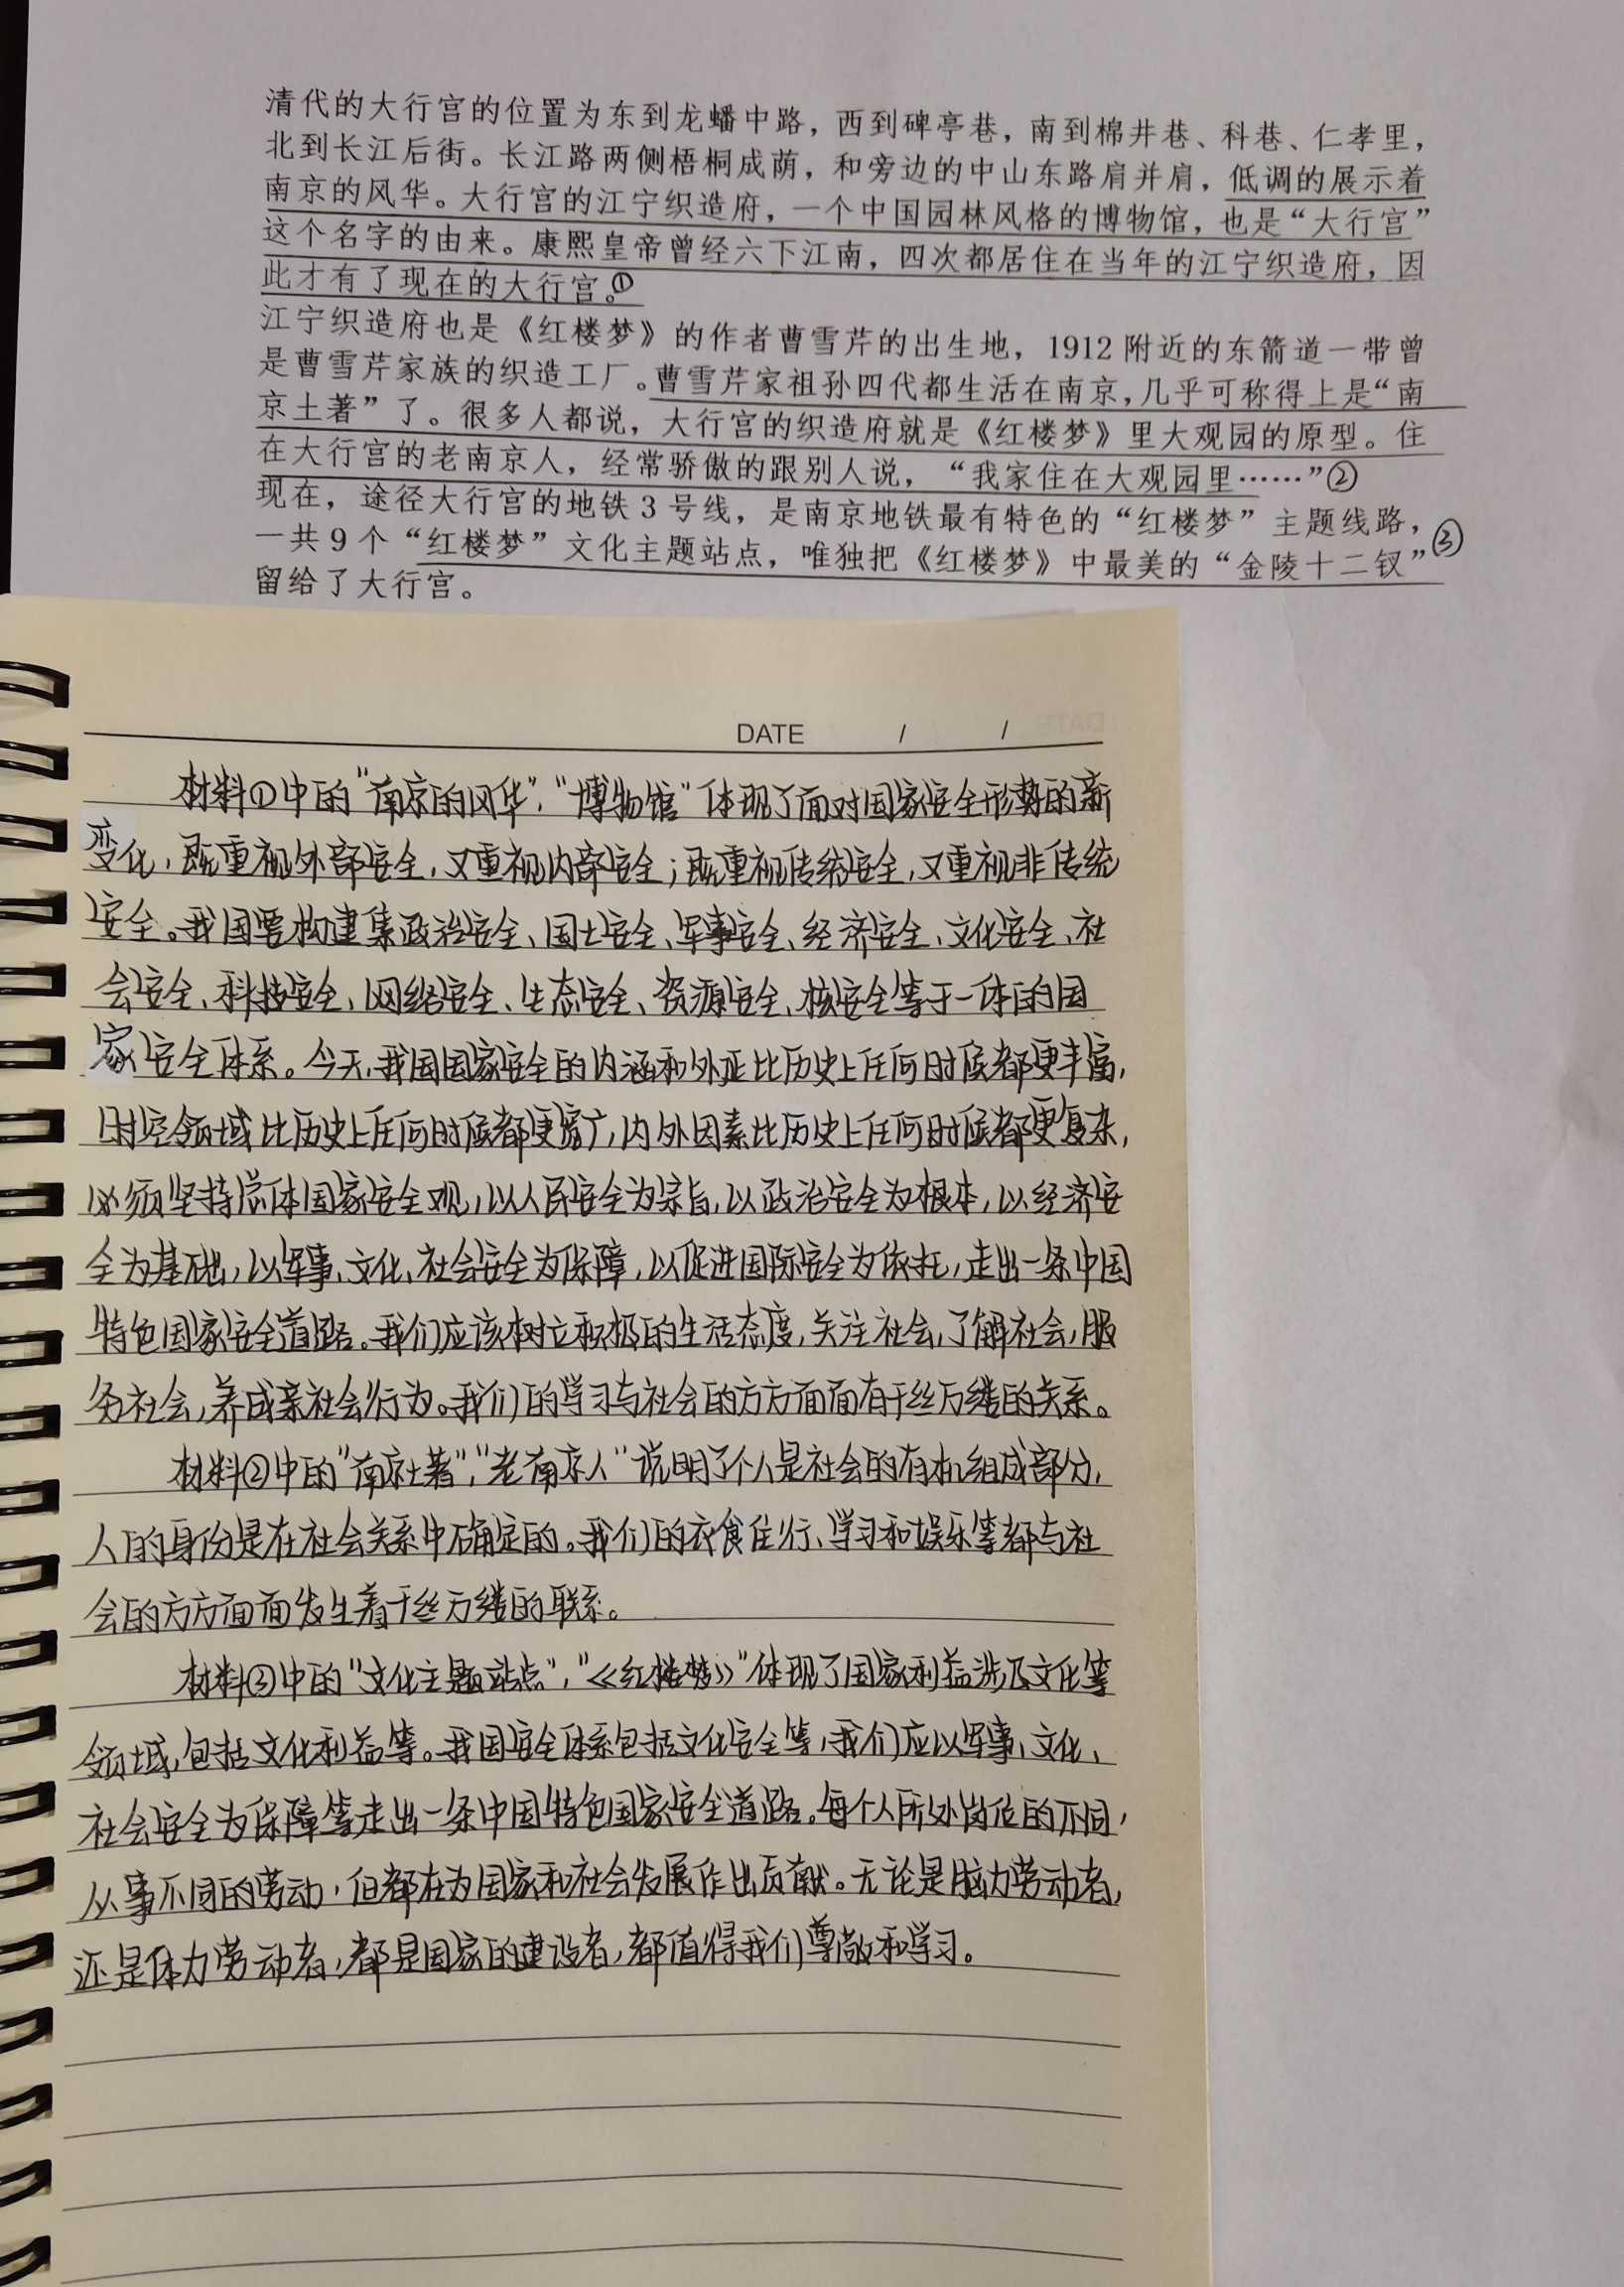 清代的大行宫的位置为东到龙蟠中路，西到碑亭巷，南到棉井巷、科巷、仁孝里，
北到长江后街。长江路两侧梧桐成荫，和旁边的中山东路肩并肩，低调的展示着
南京的风华。大行宫的江宁织造府，一个中国园林风格的博物馆，也是“大行宫”
这个名字的由来。康熙皇帝曾经六下江南，四次都居住在当年的江宁织造府，因
此才有了现在的大行宫。①
江宁织造府也是《红楼梦》的作者曹雪芹的出生地，1912附近的东箭道一带曾
是曹雪芹家族的织造工厂。曹雪芹家祖孙四代都生活在南京，几乎可称得上是“南
京土著”了。很多人都说，大行宫的织造府就是《红楼梦》里大观园的原型。住
在大行宫的老南京人，经常骄傲的跟别人说，“我家住在大观园里……”②
现在，途径大行宫的地铁3号线，是南京地铁最有特色的“红楼梦”主题线路，
一共9个“红楼梦”文化主题站点，唯独把《红楼梦》中最美的“金陵十二钗”③
留给了大行宫。
DATE / /
材料①中的“南京的风华”，“博物馆”体现了面对国家安全形势的新
变化，既重视外部安全，又重视内部安全；既重视传统安全，又重视非传统
安全。我国要构建集政治安全、国土安全、军事安全、经济安全、文化安全、社
会安全、科技安全、网络安全、生态安全、资源安全、核安全等于一体的国
家安全体系。今天，我国国家安全的内涵和外延比历史上任何时候都更丰富，
时空领域比历史上任何时候都更宽广，内外因素比历史上任何时候都更复杂，
必须坚持总体国家安全观，以人民安全为宗旨，以政治安全为根本，以经济安
全为基础，以军事、文化、社会安全为保障，以促进国际安全为依托，走出一条中国
特色国家安全道路。我们应该树立积极的生活态度，关注社会，了解社会，服
务社会，养成亲社会行为。我们的学习与社会的方方面面有千丝万缕的关系。
材料②中的“南京土著”，“老南京人”说明了个人是社会的有机组成部分，
人的身份是在社会关系中确定的。我们的衣食住行、学习和娱乐等都与社
会的方方面面发生着千丝万缕的联系。
材料③中的“文化主题站点”，“《红楼梦》”体现了国家利益涉及文化等
领域，包括文化利益等。我国安全体系包括文化安全等，我们应以军事、文化、
社会安全为保障等走出一条中国特色国家安全道路。每个人所处岗位的不同，
从事不同的劳动，但都在为国家和社会发展作出贡献。无论是脑力劳动者，
还是体力劳动者，都是国家的建设者，都值得我们尊敬和学习。